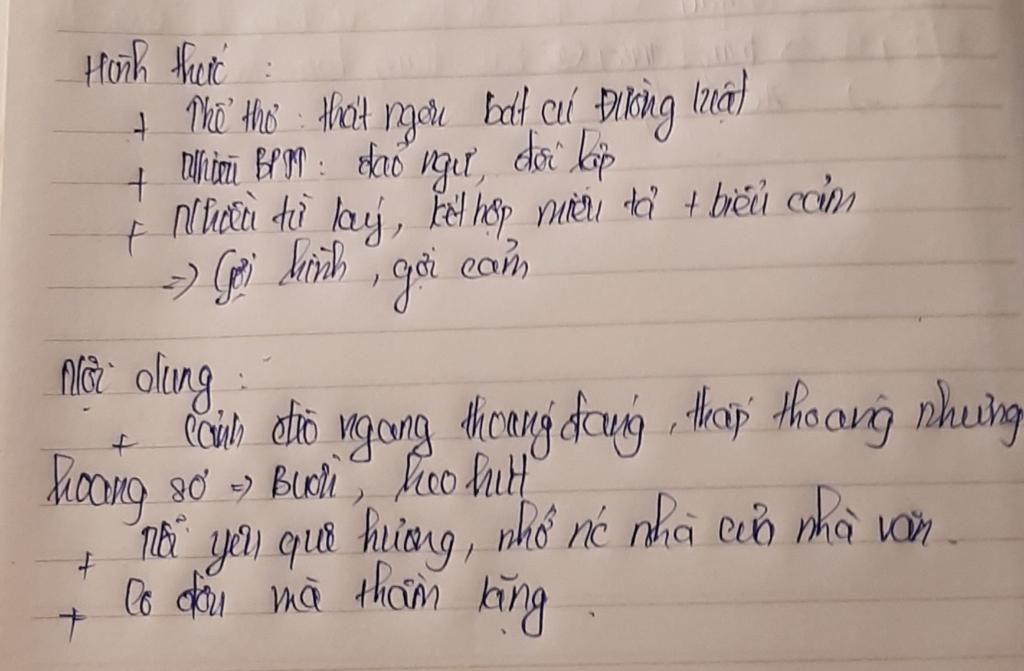 Hình thức :
+ Thể thơ : thất ngôn bát cú Đường luật
+ Nhiều BPTT : đảo ngữ, đối lập
+ Nhiều từ láy, kết hợp miêu tả + biểu cảm
=> Gợi hình, gợi cảm
Nội dung :
+ Cảnh đèo ngang thoáng đãng, thấp thoáng nhưng
hoang sơ => Buồn, heo hút
+ Nỗi yêu quê hương, nhớ nc nhà của nhà văn.
+ Cô đơn mà thầm lặng.